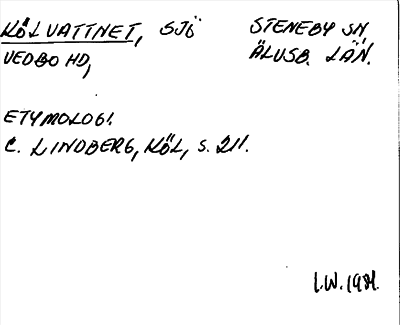 KÖLVATTNET, SJÖ STENEBY SN
VEDBO HD, ÄLVSB. LÄN.
ETYMOLOGI.
C. LINDBERG, KÖL, S. 211.
I.W. 1981.